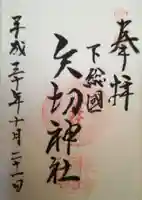 奉拝
下総國
矢切神社
平成三十年十月二十一日